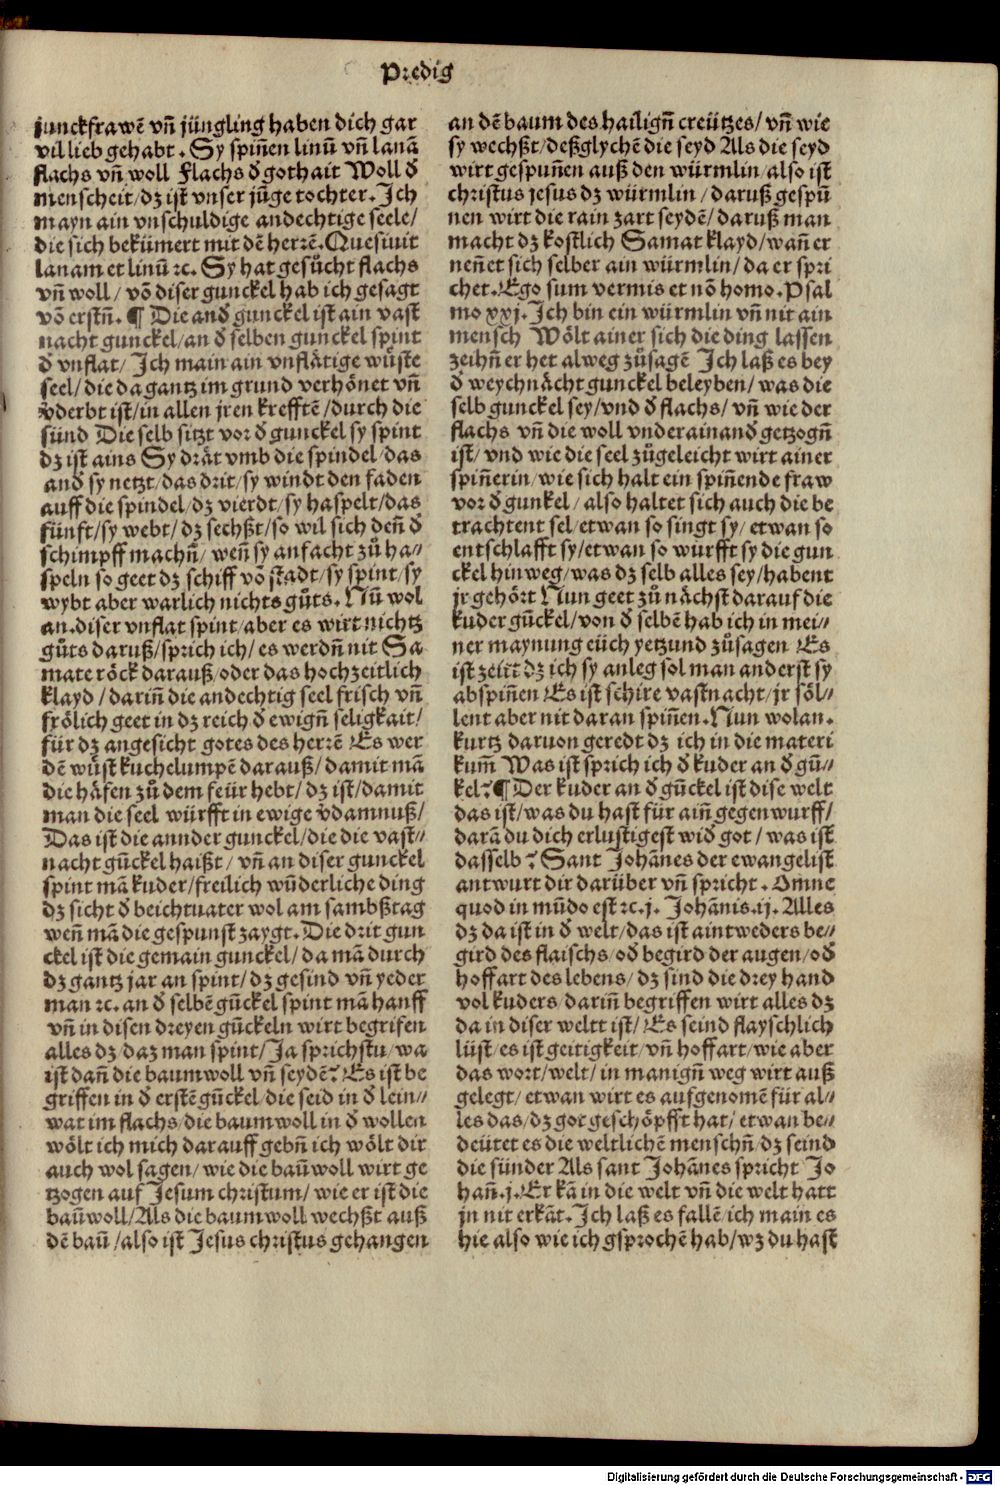 Predig
junckfrawẽ vñ jüngling haben dich gar
vil lieb gehabt . Sy spiñen linũ vñ lanã
flachs vñ woll Flachs đ gothait Woll đ
menscheit/dz ist vnser jũge tochter. Ich
mayn ain vnschuldige andechtige seele/
die sich bekümert mit dẽ herrẽ. Quesiuit
lanam et linũ ꝛc. Sy hat gesůcht flachs
vñ woll/ võ diser gunckel hab ich gesagt
võ erstñ. ¶ Die anđ gunckel ist ain vast
nacht gunckel/an đ selben gunckel spint
đ vnflat/ Ich main ain vnflätige wüste
seel/die da gantz im grund verhönet vñ
v̈derbt ist/in allen jren krefftẽ/durch die
sünd Die selb sitzt vor đ gunckel sy spint
dz ist ains Sy drät vmb die spindel/das
anđ sy netzt/das drit/sy windt den faden
auff die spindel/dz vierdt/sy haspelt/das
fünft/sy webt/dz sechßt/so wil sich deñ đ
schimpff machñ/ weñ sy anfacht zů ha⸗
speln so geet dz schiff võ stadt/sy spint/sy
wybt aber warlich nichts gůts. Nũ wol
an.diser vnflat spint/aber es wirt nichtz
gůts daruß/sprich ich/es werdñ nit Sa
mate röck darauß/oder das hochzeitlich
klayd/dariñ die andechtig seel frisch vñ
frölich geet in dz reich đ ewigñ seligkait/
für dz angesicht gotes des herrẽ Es wer
dẽ wüst kuchelumpẽ darauß/damit mã
die häfen zů dem feür hebt/dz ist/damit
man die seel würfft in ewige v̈damnuß/
Das ist die annder gunckel/die die vast⸗
nacht gũckel haißt/ vñ an diser gunckel
spint mã kuder/freilich wũderliche ding
dz sicht đ beichtuater wol am sambßtag
weñ mã die gespunst zaygt.Die drit gun
ckel ist die gemain gunckel/da mã durch
dz gantz jar an spint/dz gesind vñ yeder
man ꝛc. an đ selbẽ gũckel spint mã hanff
vñ in disen dreyen gückeln wirt begrifen
alles dz daz man spint/Ja sprichstu/wa
ist dañ die baumwoll vñ seydẽ? Es ist be
griffen in đ erstẽ gũckel/die seid in đ lein⸗
wat im flachs/die baumwoll in đ wollen
wölt ich mich darauff gebñ ich wölt dir
auch wol sagen/wie die baũwoll wirt ge
tzogen auf Jesum christum/wie er ist die
baũwoll/Als die baumwoll wechßt auß
dẽ baũ/also ist Jesus christus gehangen
an dẽ baum des hailigñ creützes/vñ wie
sy wechßt/deßglychẽ die seyd Als die seyd
wirt gespuñen auß den würmlin/also ist
christus jesus dz würmlin/daruß gespũ
nen wirt die rain zart seydẽ/daruß man
macht dz kostlich Samat klayd/wañ er
neñet sich selber ain würmlin/da er spri
chet.Ego sum vermis et nõ homo.Psal
mo xxj.Ich bin ein würmlin vñ nit ain
mensch Wölt ainer sich die ding lassen
zeihñ er het alweg zůsagẽ Ich laß es bey
đ weychnächt gunckel beleyben/was die
selb gunckel sey/vnd đ flachs/vñ wie der
flachs vñ die woll vnderainanđ getzogñ
ist/vnd wie die seel zůgeleicht wirt ainer
spiñerin/wie sich halt ein spiñende fraw
vor đ gunkel/also haltet sich auch die be
trachtent sel/etwan so singt sy/etwan so
entschlafft sy/etwan so wurfft sy die gun
ckel hinweg/was dz selb alles sey/habent
jr gehört Nun geet zů nächst darauf die
kuder gũckel/von đ selbẽ hab ich in mei⸗
ner maynung eüch yetzund zůsagen Es
ist zeitt dz ich sy anleg sol man anderst sy
abspiñen Es ist schire vastnacht/jr söl⸗
lent aber nit daran spiñen.Nun wolan.
kurtz daruon geredt dz ich in die materi
kum̃ Was ist sprich ich đ kuder an đ gũ⸗
kel? ¶ Der kuder an đ gũckel ist dise welt
das ist/was du hast für aiñ gegenwurff/
darã du dich erlustigest wiđ got/was ist
dasselb? Sant Johãnes der ewangelist
antwurt dir darüber vñ spricht . Omne
quod in mũdo est ꝛc.j. Johãnis.ij. Alles
dz da ist in đ welt/das ist aintweders be⸗
gird des flaischs/ođ begird der augen/ođ
hoffart des lebens/dz sind die drey hand
vol kuders/dariñ begriffen wirt alles dz
da in diser weltt ist/Es seind flayschlich
lüst/es ist geitigkeit/vñ hoffart/wie aber
das wort/welt/in manigñ weg wirt auß
gelegt/etwan wirt es aufgenomẽ für al⸗
les das/dz got geschöpfft hat/etwan be⸗
deütet es die weltlichẽ menschñ/dz seind
die sünder Als sant Johãnes spricht Jo
hañ.j.Er kã in die welt vñ die welt hatt
jn nit erkãt.Ich laß es fallẽ/ich main es
hie also wie ich gsprochẽ hab/wz du hast
Digitalisierung gefördert durch die Deutsche Forschungsgemeinschaft - DFG